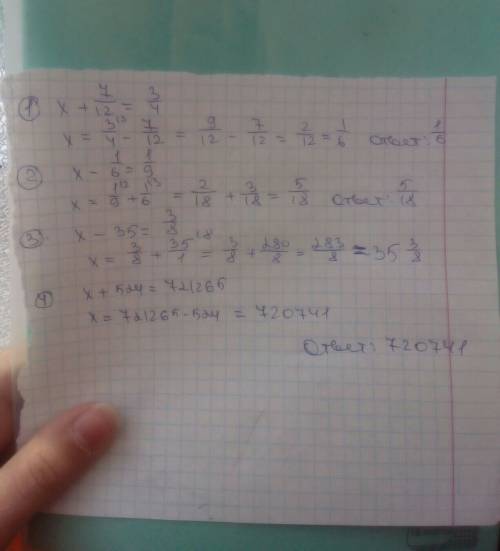 ① x + 7/12 = 3/4
x = 3/4 - 7/12 = 9/12 - 7/12 = 2/12 = 1/6 Ответ: 1/6
② x - 1/6 = 1/9
x = 1/9 + 1/6 = 2/18 + 3/18 = 5/18 Ответ: 5/18
③ x - 35 = 3/8
x = 3/8 + 35/1 = 3/8 + 280/8 = 283/8 = 35 3/8
④ x + 524 = 721265
x = 721265 - 524 = 720741
Ответ: 720741